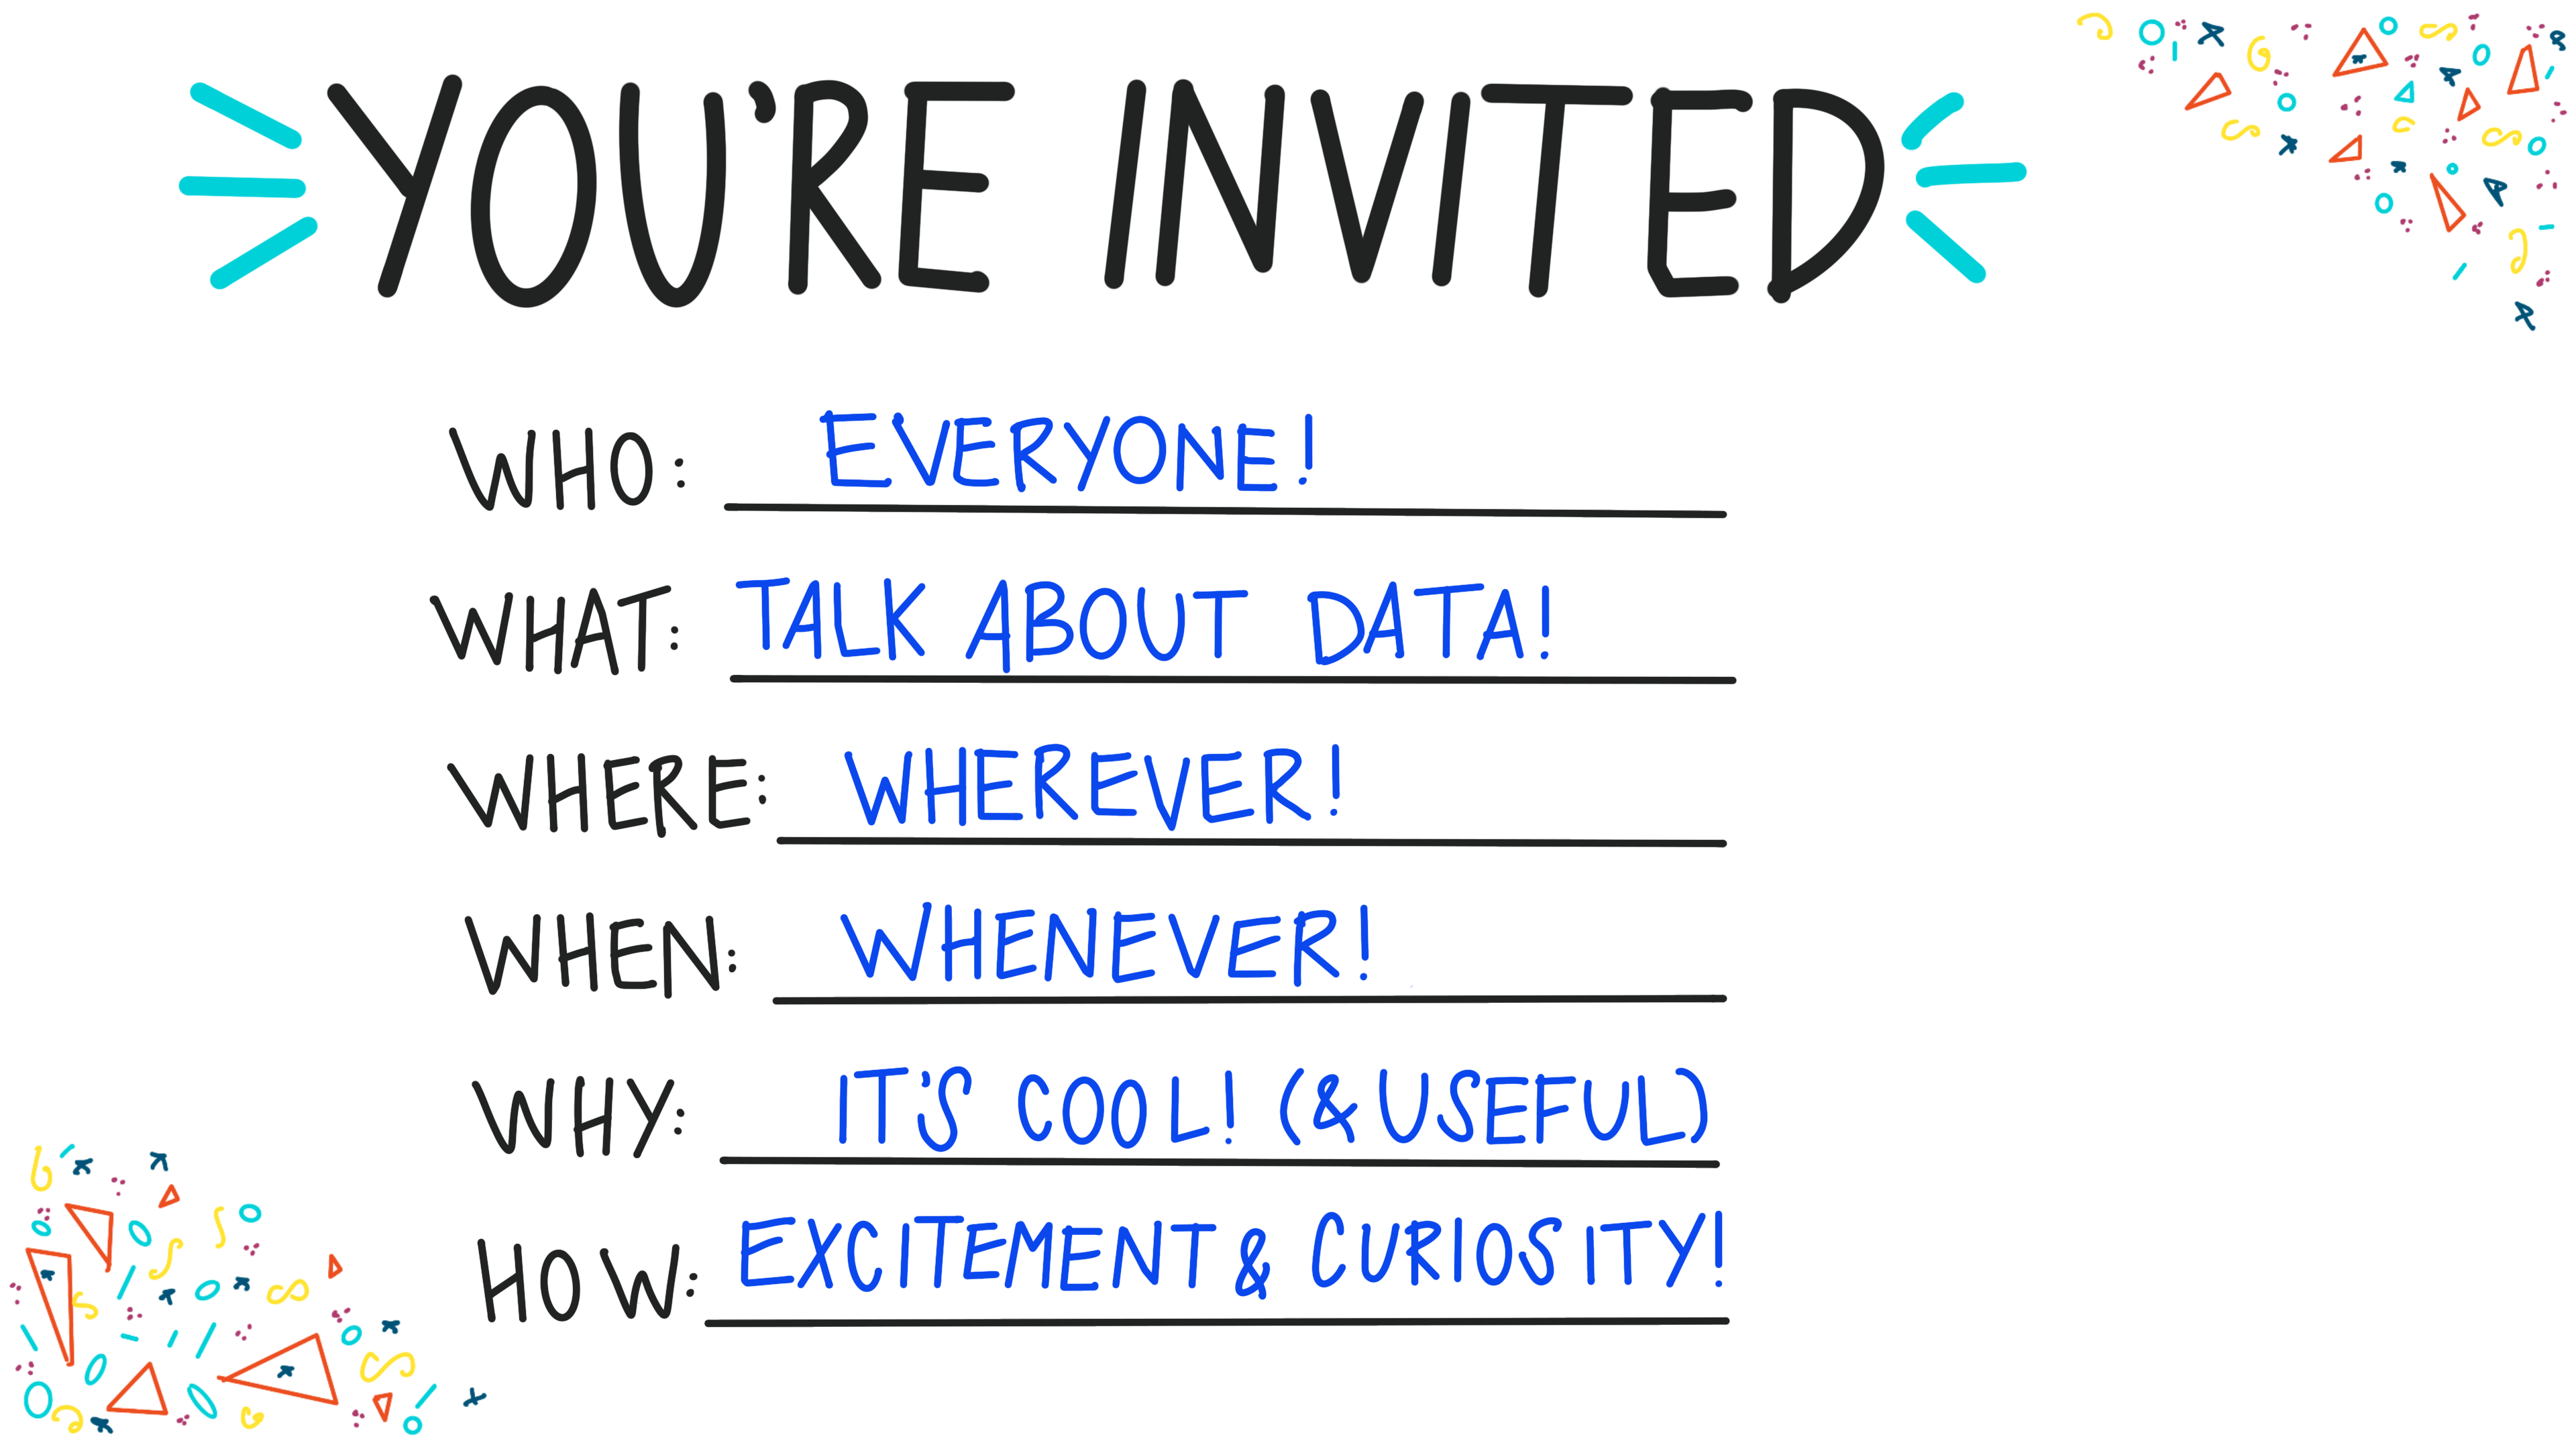 YOU'RE INVITED
WHO: EVERYONE!
WHAT: TALK ABOUT DATA!
WHERE: WHEREVER!
WHEN: WHENEVER!
WHY: IT'S COOL! (& USEFUL)
HOW: EXCITEMENT & CURIOSITY!